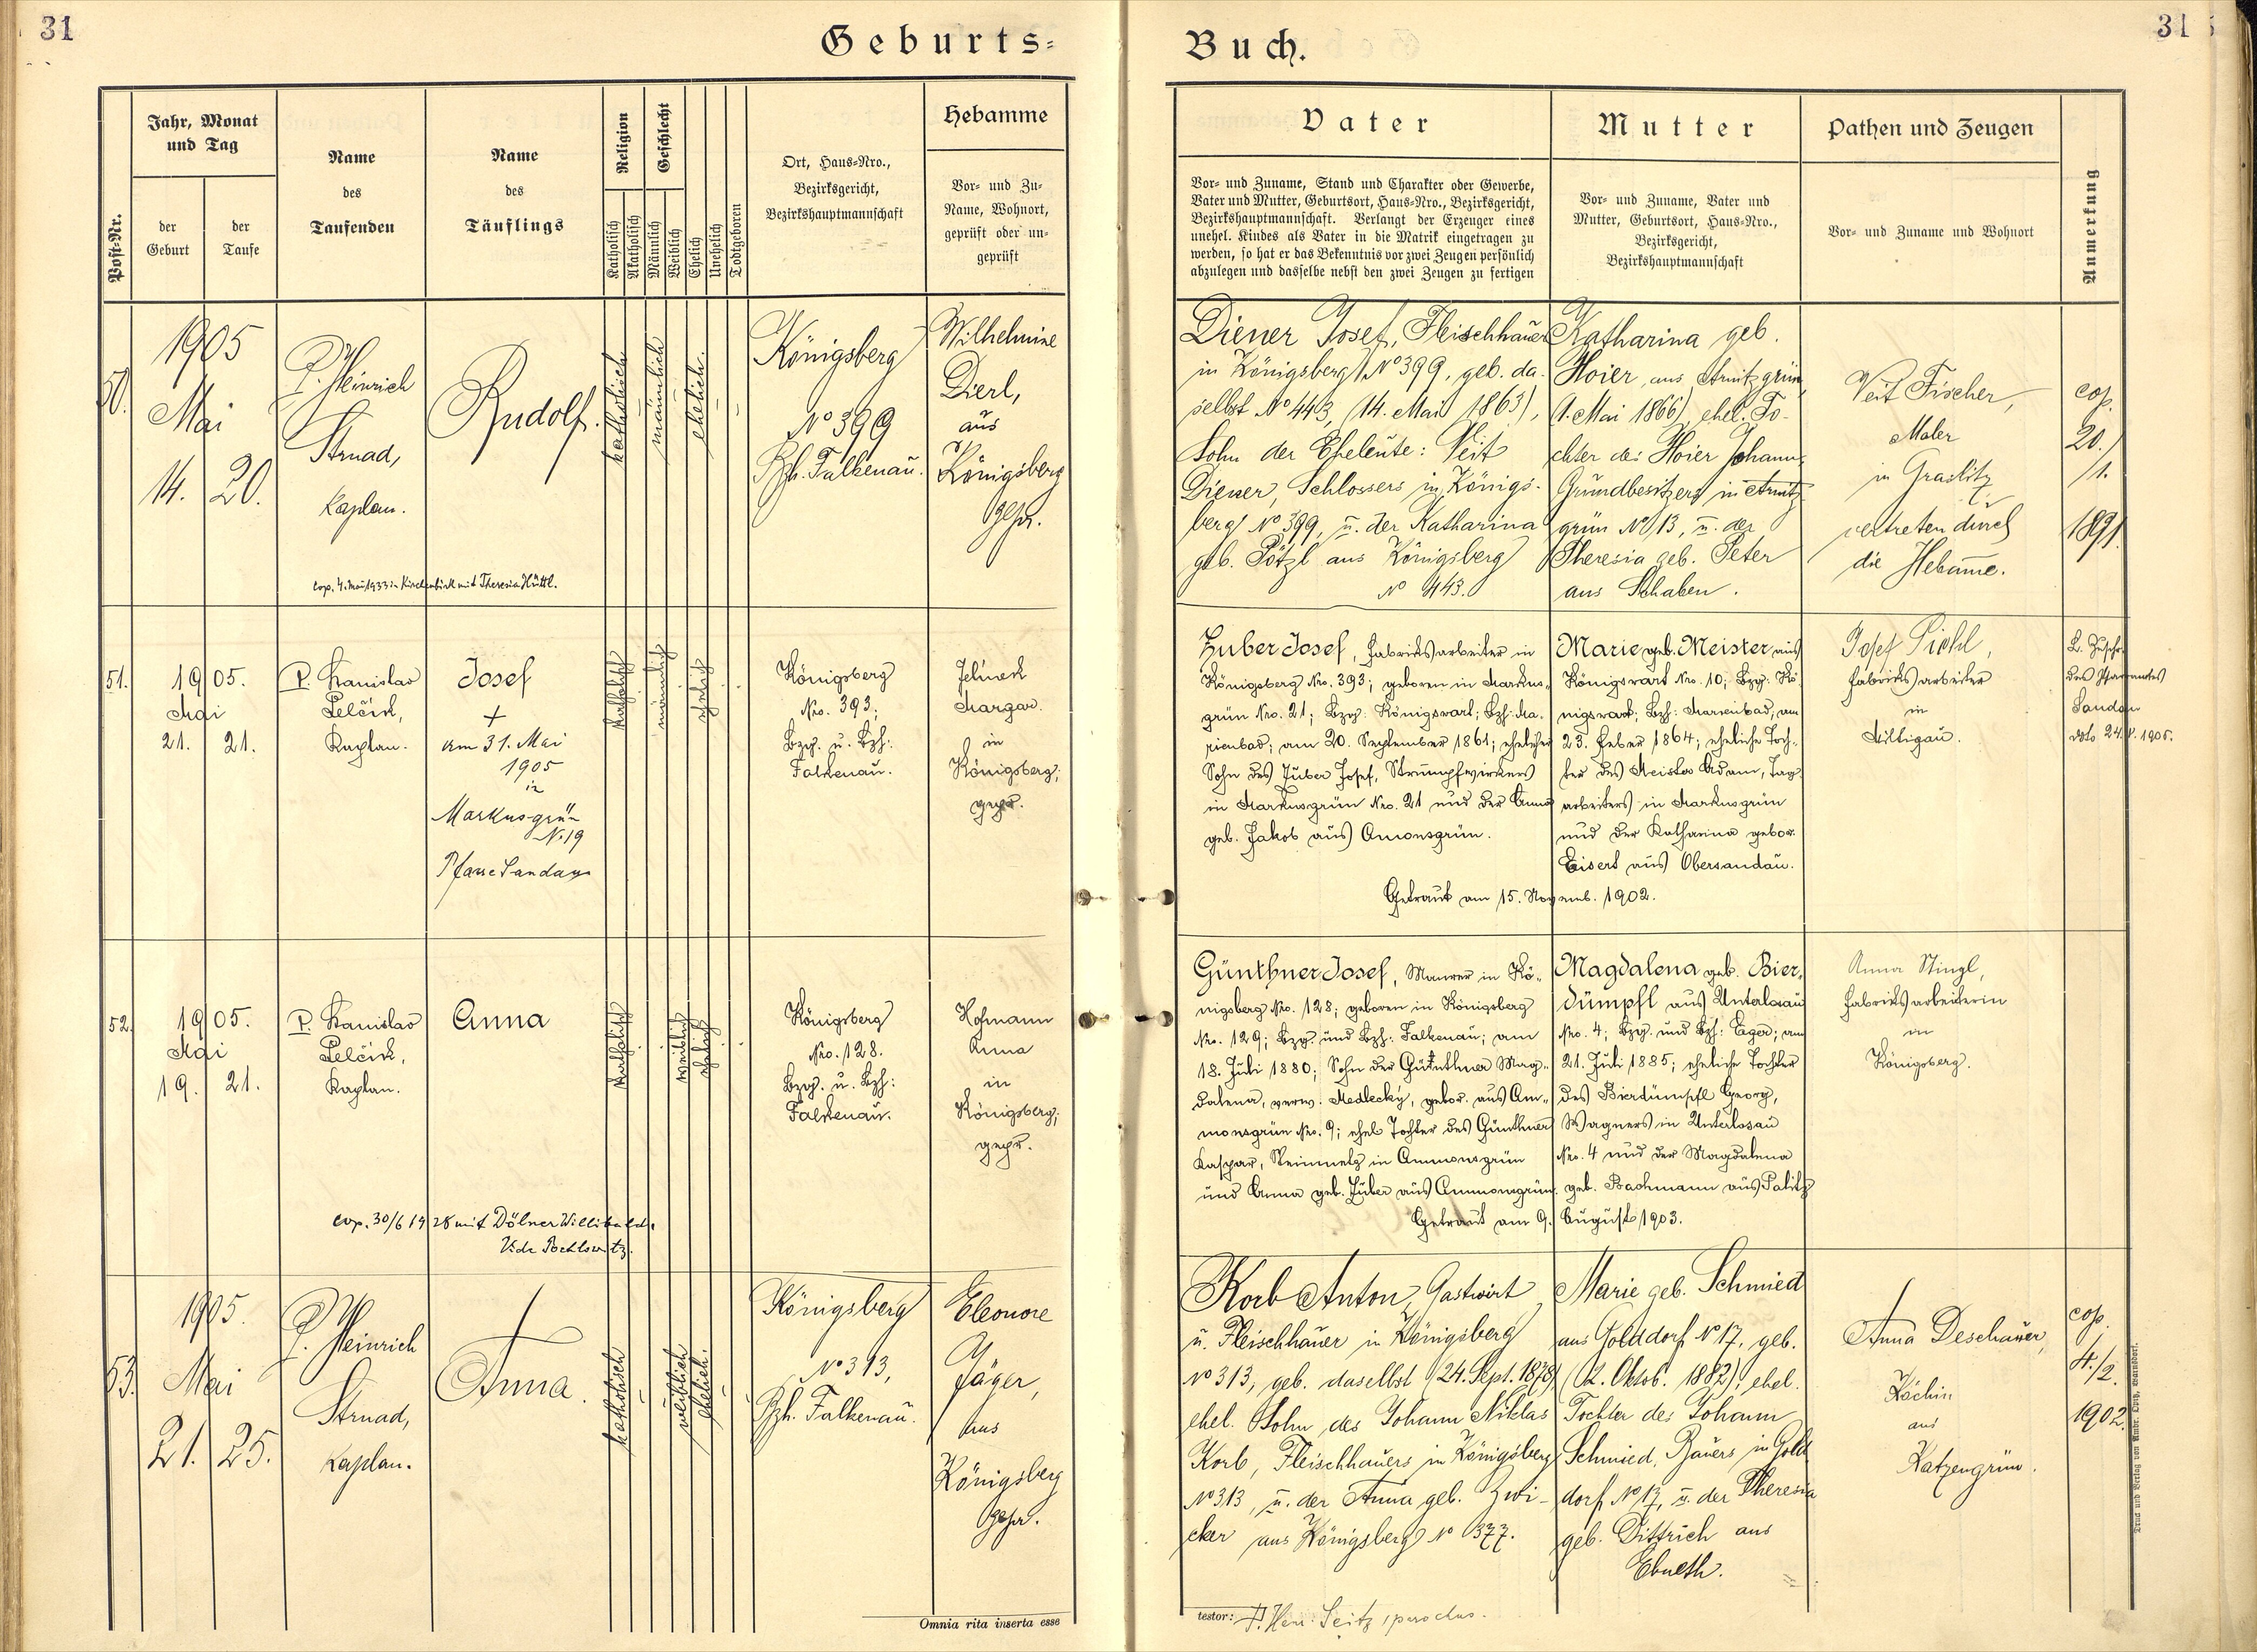 31
Geburts-
Post-Nr.
Jahr, Monat
und Tag
der
Geburt
der
Taufe
Name
des
Taufenden
Name
des
Täuflings
Religion
Katholisch
Akatholisch
Geschlecht
Männlich
Weiblich
Ehelich
Unehelich
Todtgeboren
Ort, Haus-Nro.,
Bezirksgericht,
Bezirkshauptmannschaft
Hebamme
Vor- und Zu-
Name, Wohnort,
geprüft oder un-
geprüft
50.
1905
Mai
14. 20.
P. Heinrich
Strnad,
Kaplan.
Rudolf.
katholisch
männlich
ehelich.
Königsberg
No 399
Bzh. Falkenau.
Wilhelmine
Dierl,
aus
Königsberg
gepr.
cop. 4. Mai 1933 in Kirchenbirk mit Theresia Hüttl.
51.
1905.
Mai
21. 21.
P. Stanislav
Pelčik,
Kaplan.
Josef
+
am 31. Mai
1905
in
Markusgrün
N. 19
Pfarre Sandau
katholisch
männlich
ehelich
Königsberg
Nro. 393;
Bzg. u. Bzh:
Falkenau.
Jelinek
Margar.
in
Königsberg;
gepr.
52.
1905.
Mai
19. 21.
P. Stanislav
Pelčik,
Kaplan.
Anna
katholisch
weiblich
ehelich
Königsberg
Nro. 128.
Bzg. u. Bzh:
Falkenau.
Hofmann
Anna
in
Königsberg;
gepr.
cop. 30/6 1928 mit Dölner Willibald.
Vide Pochlowitz.
53.
1905.
Mai
21. 25.
P. Heinrich
Strnad,
Kaplan.
†
Anna.
katholisch
weiblich
ehelich.
Königsberg
No 313,
Bzh. Falkenau.
Eleonore
Jäger,
aus
Königsberg
gepr.
Omnia rita inserta esse
Buch.
31
Vater
Vor- und Zuname, Stand und Charakter oder Gewerbe,
Vater und Mutter, Geburtsort, Haus-Nro., Bezirksgericht,
Bezirkshauptmannschaft. Verlangt der Erzeuger eines
unehel. Kindes als Vater in die Matrik eingetragen zu
werden, so hat er das Bekenntnis vor zwei Zeugen persönlich
abzulegen und dasselbe nebst den zwei Zeugen zu fertigen
Mutter
Vor- und Zuname, Vater und
Mutter, Geburtsort, Haus-Nro.,
Bezirksgericht,
Bezirkshauptmannschaft
Pathen und Zeugen
Vor- und Zuname und Wohnort
Anmerkung
Diener Josef, Fleischhauer
in Königsberg No 399, geb. da-
selbst No 443, (14. Mai 1863),
Sohn der Eheleute: Veit
Diener, Schlossers in Königs-
berg No 399, u. der Katharina
geb. Pötzl aus Königsberg
No 443.
Katharina geb.
Hoier aus Arnitzgrün,
(1. Mai 1866) ehel. To-
chter des Hoier Johann,
Grundbesitzers in Arnitz-
grün No 13, u. der
Theresia geb. Peter
aus Schaben.
Veit Fischer,
Maler
in Graslitz
vertreten durch
die Hebamme.
cop.
20./
/1.
1891.
Zuber Josef, Fabriksarbeiter in
Königsberg Nro. 393; geboren in Markus-
grün Nro. 21; Bzg: Königswart; Bzh: Ma-
rienbad; am 20. September 1861; ehelicher
Sohn des Zuber Josef, Strumpfwirkers
in Markusgrün Nro. 21 und der Anna
geb. Jakob aus Amonsgrün.
Marie geb. Meister aus
Königswart Nro. 10; Bzg: Kö-
nigswart; Bzh: Marienbad; am
23. Feber 1864; eheliche Toch-
ter des Meister Adam, Tag-
arbeiters in Markusgrün
und der Katharina gebor.
Eisert aus Obersandau.
Getraut am 15. Novemb. 1902.
Josef Pichl,
Fabriksarbeiter
in
Miltigau.
L. Zuschr.
des Pfarramtes
Sandau
dto 24./V. 1905.
Günthner Josef, Maurer in Kö-
nigsberg Nro. 128; geboren in Königsberg
Nro. 129; Bzg. und Bzh: Falkenau; am
18. Juli 1880; Sohn der Günthner Mag-
dalena, verw. Medlecky, gebor. aus Am-
monsgrün Nro. 9; ehel. Tochter des Günthner
Kaspar, Steinmetz in Ammonsgrün
und Anna geb. Zuber aus Ammonsgrün.
Magdalena geb. Bier-
dümpfl aus Unterlosau
Nro. 4; Bzg. und Bzh: Eger; am
21. Juli 1885; eheliche Tochter
des Bierdümpfl Georg,
Wagners in Unterlosau
Nro. 4 und der Magdalena
geb. Bachmann aus Palitz
Getraut am 9. August 1903.
Anna Stingl,
Fabriksarbeiterin
in
Königsberg.
Korb Anton, Gastwirt
u. Fleischhauer in Königsberg
No 313, geb. daselbst (24. Sept. 1878)
ehel. Sohn des Johann Niklas
Korb, Fleischhauers in Königsberg
No 313, u. der Anna geb. Zwi-
cker aus Königsberg No 377.
Marie geb. Schmied
aus Golddorf No 17, geb.
(2. Oktob. 1882), ehel.
Tochter des Johann
Schmied, Bauers in Gold-
dorf No 17, u. der Theresia
geb. Dittrich aus
Ebmeth.
Anna Deschauer,
Köchin
aus
Katzengrün.
cop.
4./2.
1902.
testor: P. Henr. Seitz, parochus.
Druck und Verlag von Ambr. Opitz, Warnsdorf.